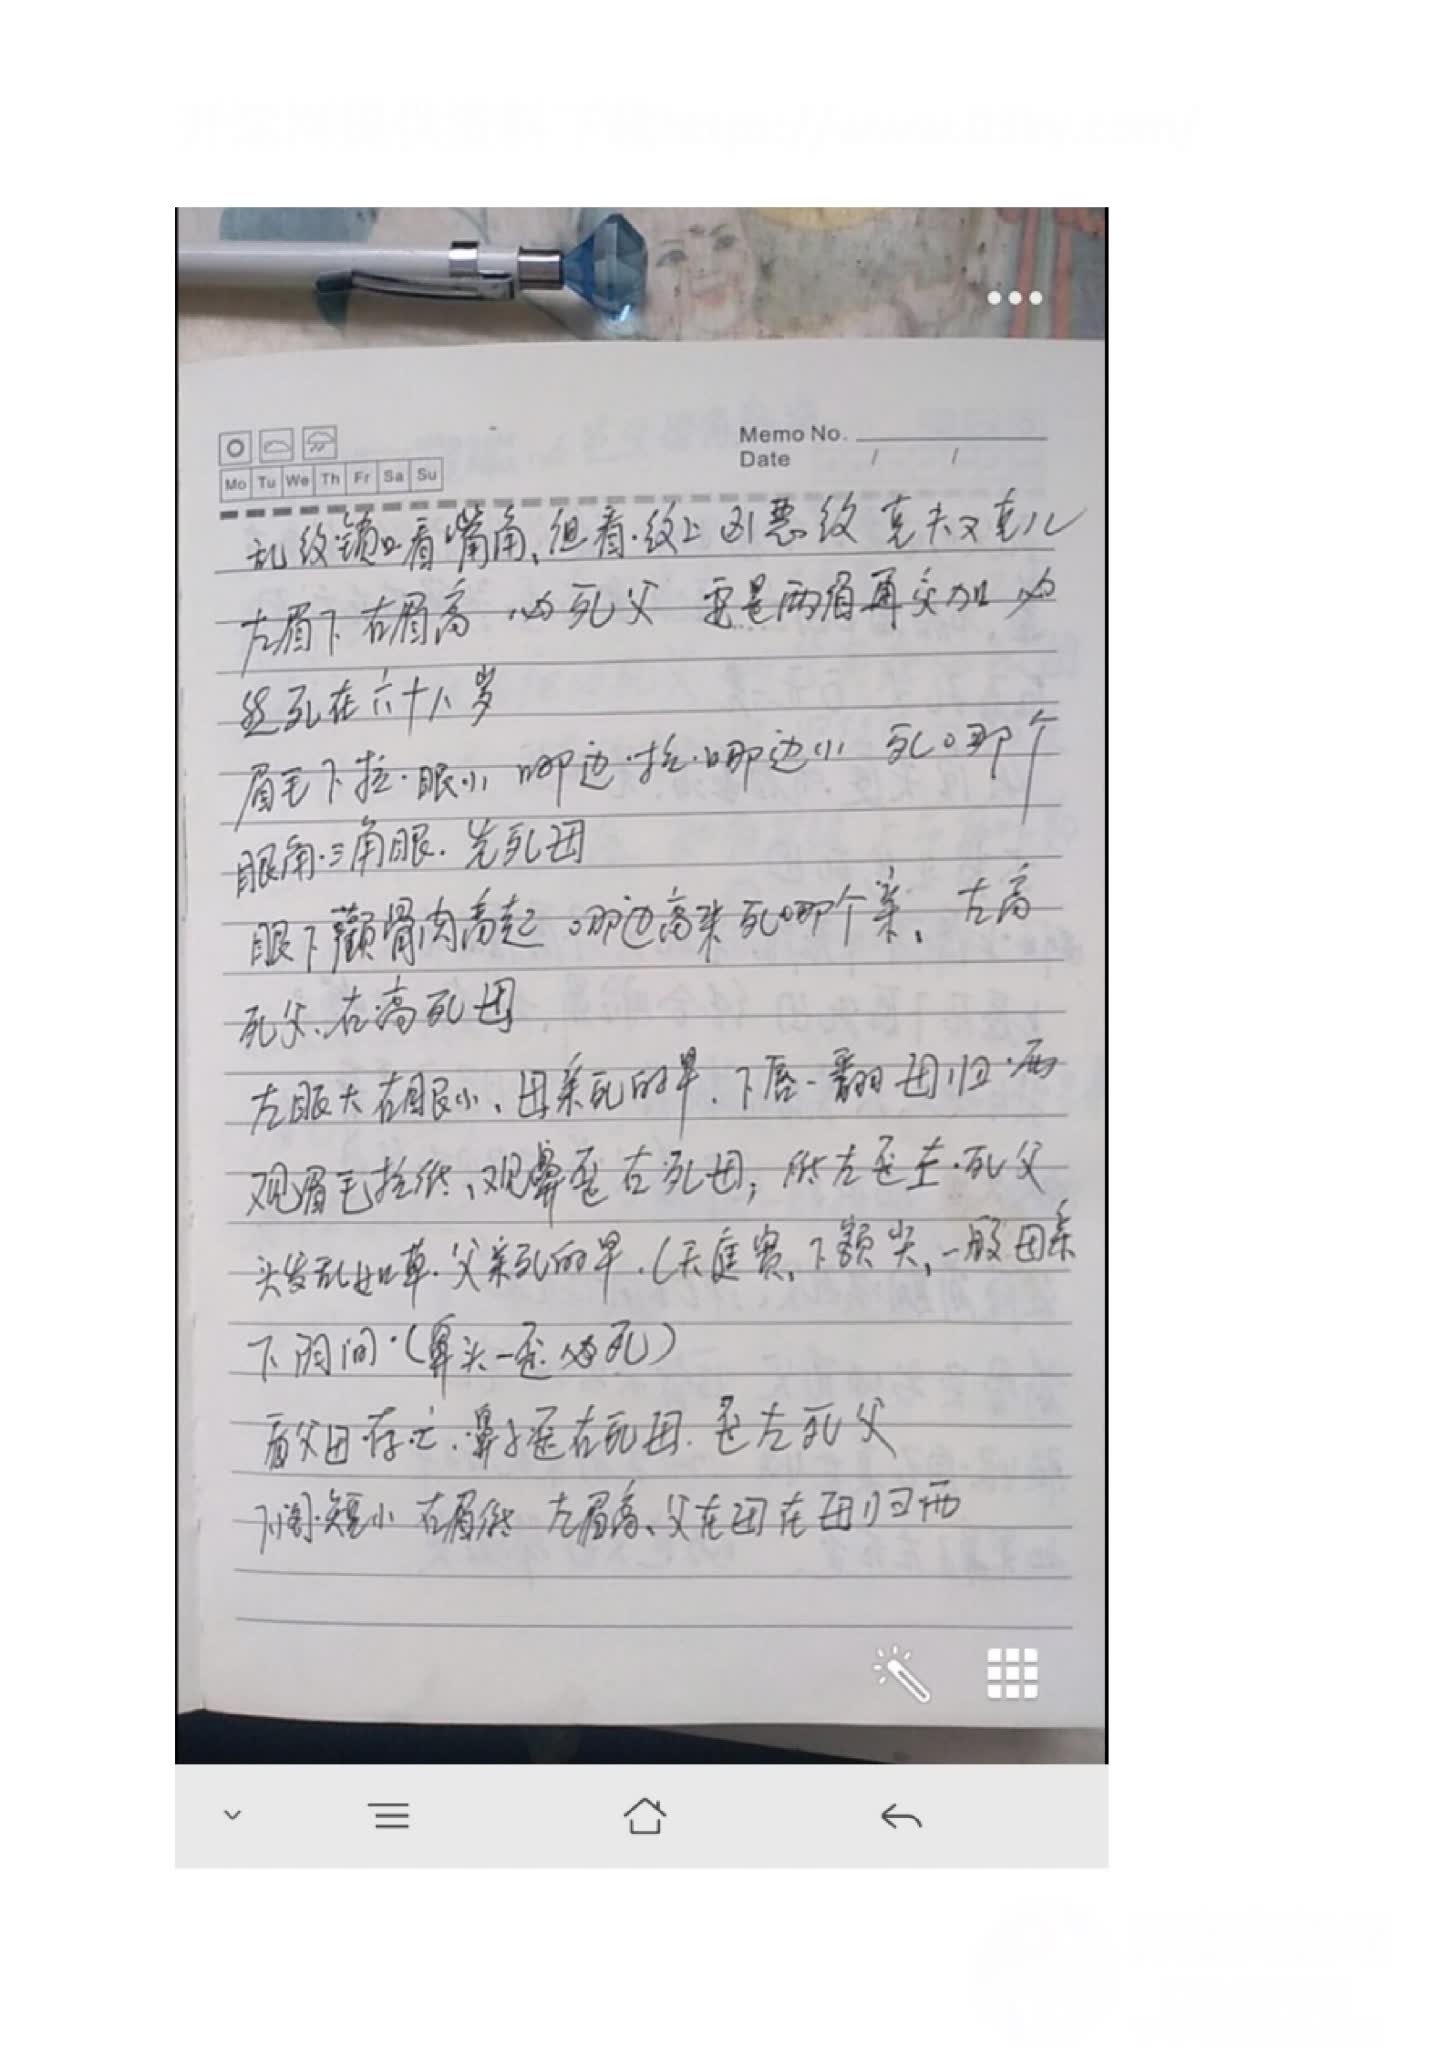 Memo No.
Date / /
Mo Tu We Th Fr Sa Su
乱纹锁口看嘴角、但看纹上凶恶纹 克夫又克儿
左眉下右眉高 必死父 要是两眉再交加 必
然死在六十八岁
眉毛下拉·眼小 哪边拉·哪边小 死哪个
眼角·三角眼·先死母
眼下颧骨肉高起 哪边高来死哪个亲、左高
死父、右高死母
左眼大右眼小、母亲死的早、下唇一翻母归西
观眉毛拉低、观鼻歪右死母；低左歪左·死父
头发乱如草·父亲死的早·(天庭宽、下额尖、一般母亲
下阴间·(鼻头一歪必死)
看父母存亡·鼻子歪右死母·歪左死父
短小 右眉低 左眉高、父在母在母归西